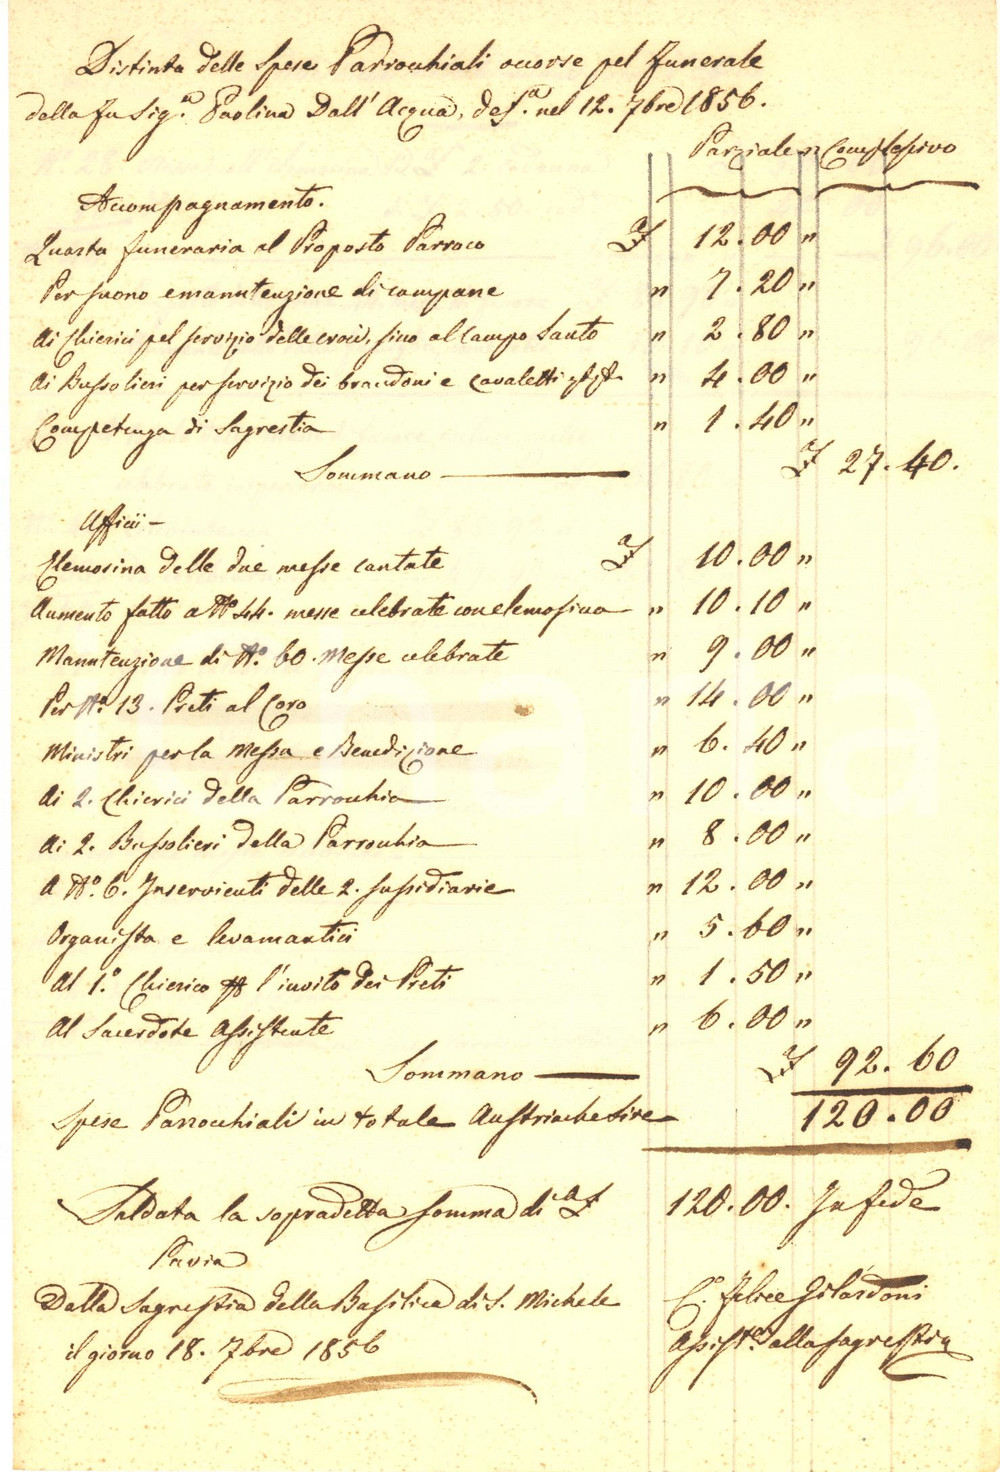 Distinta delle Spese Parrochiali occorse pel funerale
della fu Sig.ª Paolina Dall' Acqua, def.ª nel 12. 7bre 1856.
Parziale Complessivo
Accompagnamento.
Quarta funeraria al Proposto Parroco £ 12.00 "
Per suono e manutenzione di campane " 7.20 "
Ai Chierici pel servizio delle croci, sino al Campo Santo " 2.80 "
Ai Bussolieri per servizio dei brandoni e cavaletti " 4.00 "
Competenza di Sagrestia " 1.40 "
Sommano £ 27.40.
Uffici -
Elemosina delle due messe cantate £ 10.00 "
Aumento fatto a Nº 44. messe celebrate con elemosina " 10.10 "
Manutenzione di Nº 60. Messe celebrate " 9.00 "
Per Nº 13. Preti al Coro " 14.00 "
Ministri per la Messa e Benedizione " 6.40 "
Ai 2. Chierici della Parrochia " 10.00 "
Ai 2. Bussolieri della Parrochia " 8.00 "
A Nº 6. Inservienti delle 2. sussidiarie " 12.00 "
Organista e levamantici " 5.60 "
Al 1.º Chierico l'invito dei Preti " 1.50 "
Al Sacerdote Assistente " 6.00 "
Sommano £ 92.60
Spese Parrochiali in totale Austriache Lire 120.00
Saldata la sopradetta somma di £ 120.00. In fede
Pavia
Dalla Sagrestia della Basilica di S. Michele C. Felice Gilardoni
il giorno 18. 7bre 1856 Assist.e alla Sagrestia